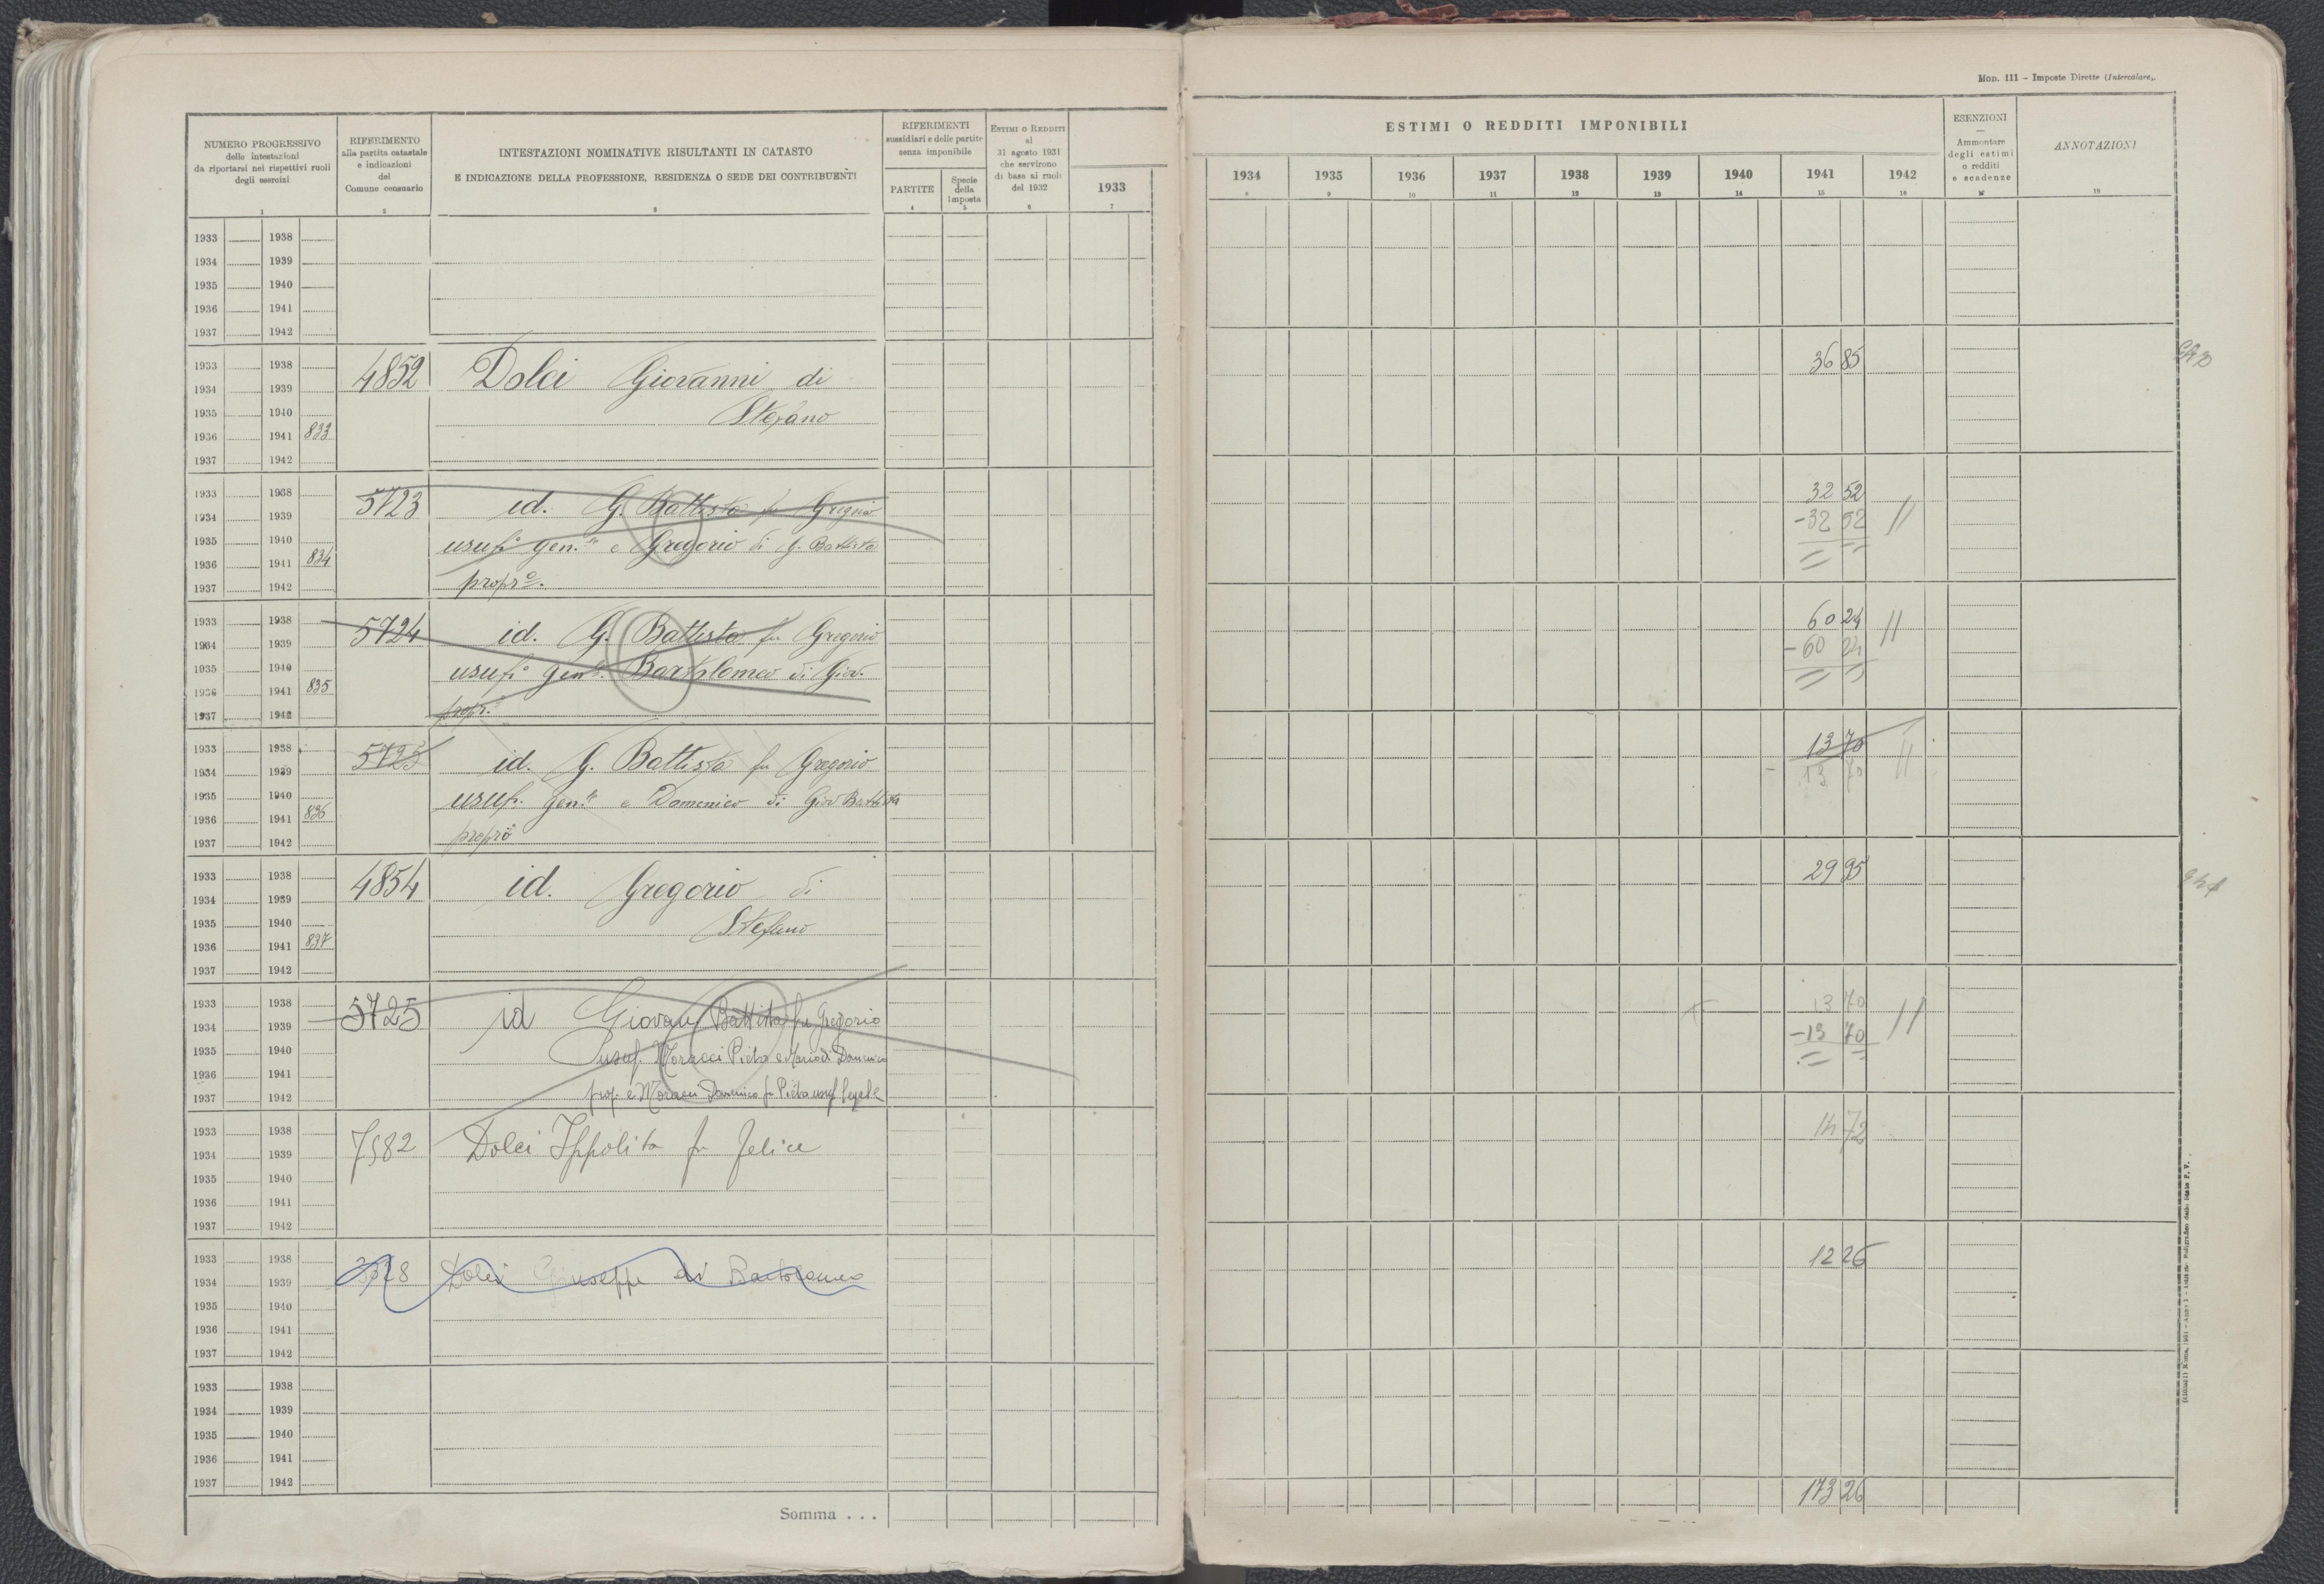 Mod. 111 – Imposte Dirette (Intercalare).
NUMERO PROGRESSIVO
delle intestazioni
da riportarsi nei rispettivi ruoli
degli esercizi
1
RIFERIMENTO
alla partita catastale
e indicazioni
del
Comune censuario
2
INTESTAZIONI NOMINATIVE RISULTANTI IN CATASTO
E INDICAZIONE DELLA PROFESSIONE, RESIDENZA O SEDE DEI CONTRIBUENTI
3
RIFERIMENTI
sussidiari e delle partite
senza imponibile
PARTITE
4
Specie
della
imposta
5
Estimi o Redditi
al
31 agosto 1931
che servirono
di base ai ruoli
del 1932
6
1933
7
ESTIMI O REDDITI IMPONIBILI
1934 1935 1936 1937 1938 1939 1940 1941 1942
8 9 10 11 12 13 14 15 16
ESENZIONI
—
Ammontare
degli estimi
o redditi
e scadenze
17
ANNOTAZIONI
18
1933 1938
1934 1939
1935 1940
1936 1941
1937 1942
1933 1938
1934 1939 4852 Dolci Giovanni di 36 85
1935 1940 Stefano
1936 1941 833
1937 1942
1933 1938 5723 id. G. Battista fu Gregorio 32 52
1934 1939 -32 52 //
1935 1940 usuf.o gen.le e Gregorio di G. Battista
1936 1941 834
1937 1942 propr.o
1933 1938 5724 id. G. Battista fu Gregorio 60 24 //
1934 1939 -60 24
1935 1940 usuf.o gen.le Bartolomeo di Giov.
1936 1941 835
1937 1942 propr.
1933 1938 5725 id. G. Battista fu Gregorio 13 70
1934 1939 - 13 70 //
1935 1940 usuf. gen.le e Domenico di Giov Battista
1936 1941 836
1937 1942 propr.o
1933 1938 4854 id. Gregorio di 29 95
1934 1939
1935 1940 Stefano
1936 1941 837
1937 1942
1933 1938 5725 id Giovan Battista fu Gregorio 13 70
1934 1939 -13 70 //
1935 1940 usuf. Moracci Pietro e Maria di Domenico
1936 1941
1937 1942 prop. e Moracci Domenico fu Pietro usuf. legale
1933 1938 7582 Dolci Ippolito fu Felice 14 72
1934 1939
1935 1940
1936 1941
1937 1942
1933 1938 Dolci Giuseppe di Bartolomeo 12 26
1934 1939
1935 1940
1936 1941
1937 1942
1933 1938
1934 1939
1935 1940
1936 1941
1937 1942
Somma . . . 173 26